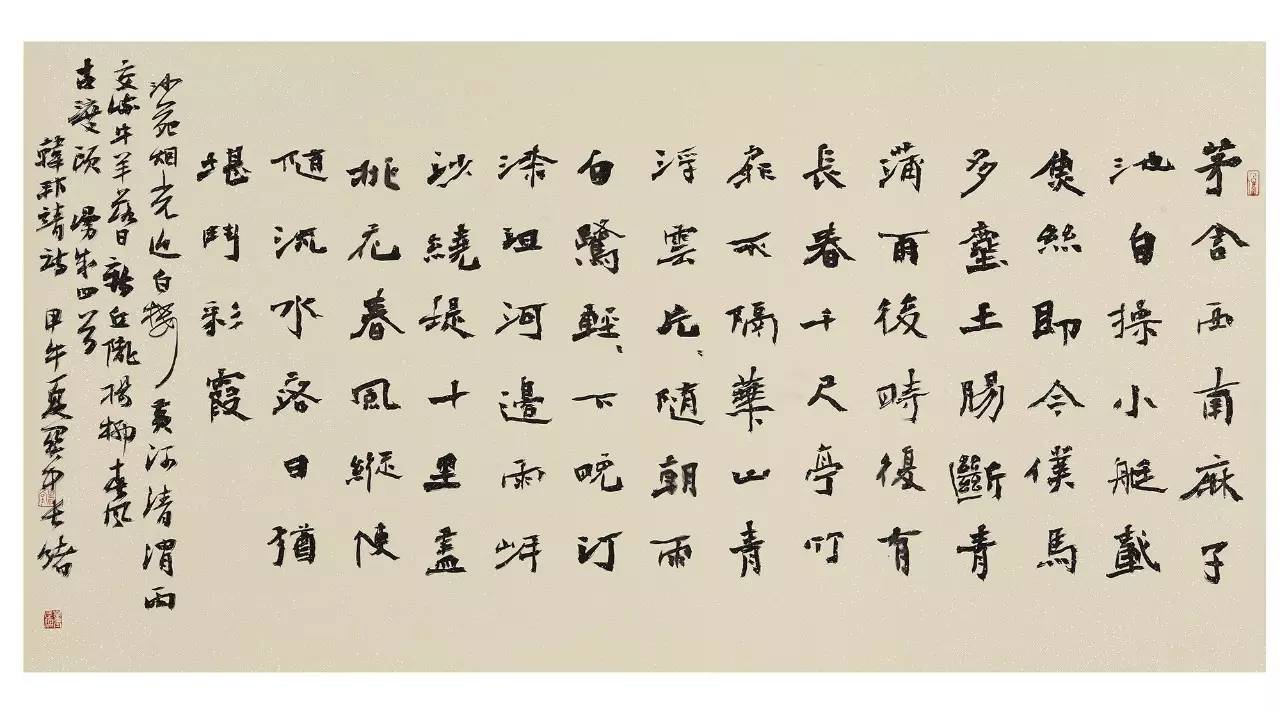 茅舍西南麻子
池自操小艇載
魚絲即今僕馬
多塵土腸斷青
蒲雨後時復有
長春千尺亭竹
扉不隔華山青
浮雲片、隨朝雨
白鷺輕、下晚汀
漆沮河邊兩岸
沙繞堤十里盡
桃花春風縱使
隨流水落日猶
堪鬥彩霞
沙苑烟光近白樓黃河清渭兩
交流牛羊落日新丘隴楊柳春風
古渡頭 漫成四首
韓邦靖詩 甲午夏